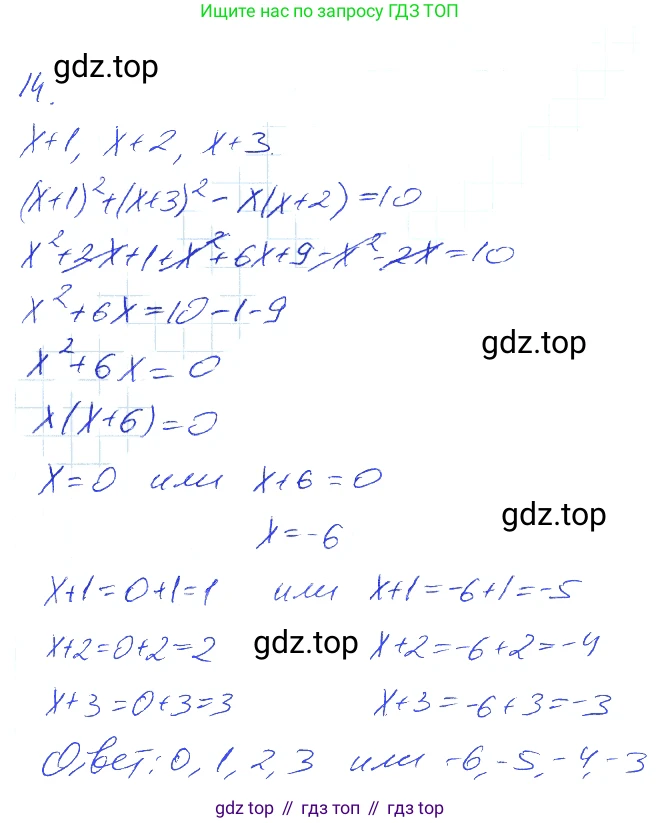 Ищите нас по запросу ГДЗ ТОП
gdz.top
14.
x+1, x+2, x+3.
(x+1)²+(x+3)² - x(x+2)=10
x²+2x+1+x²+6x+9-x²-2x=10
x²+6x=10-1-9
gdz.top
x²+6x=0
x(x+6)=0
x=0 или x+6=0
gdz.top
x=-6
x+1=0+1=1 или x+1=-6+1=-5
x+2=0+2=2 gdz.top x+2=-6+2=-4
x+3=0+3=3 x+3=-6+3=-3
Ответ: 0, 1, 2, 3 или -6, -5, -4, -3
gdz top // гдз топ // gdz top